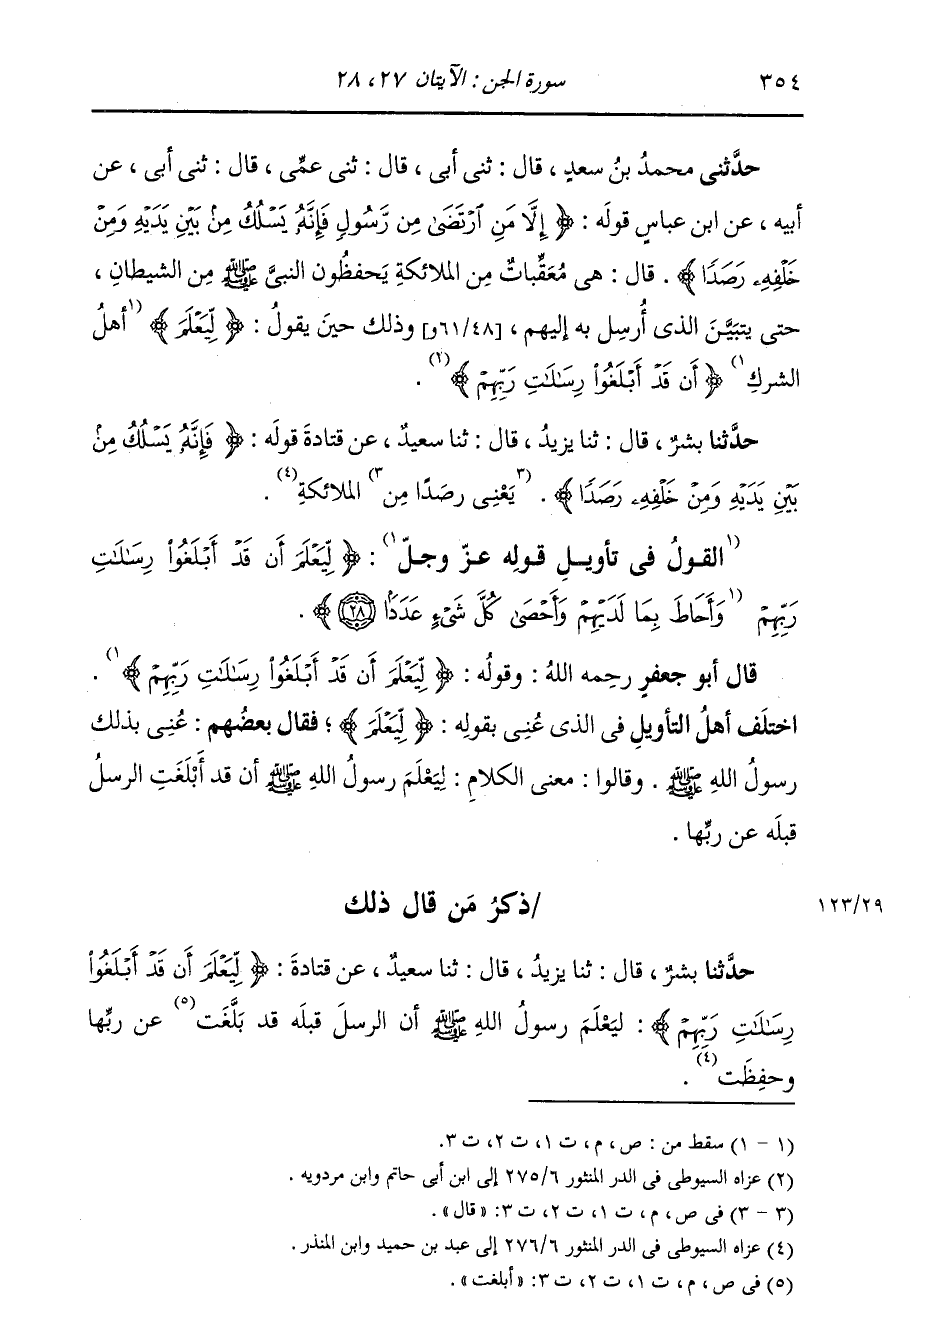 ٣٥٤ سورة الجن : الآيتان ٢٧، ٢٨
حدَّثنى محمدُ بنُ سعدٍ ، قال : ثنى أبى ، قال : ثنى عمِّى ، قال : ثنى أبى ، عن
أبيه ، عن ابن عباسٍ قولَه : ﴿ إِلَّا مَنِ ٱرْتَضَىٰ مِن رَّسُولٍ فَإِنَّهُ يَسْلُكُ مِنْ بَيْنِ يَدَيْهِ وَمِنْ
خَلْفِهِۦ رَصَدًا ﴾ . قال : هى مُعَقِّباتٌ مِن الملائكةِ يَحفظُون النبىَّ ﷺ مِن الشيطانِ ،
حتى يتبَيَّنَ الذى أُرسِل به إليهم ، [٦١/٤٨و] وذلك حينَ يقولُ : ﴿ لِّيَعْلَمَ ﴾ (١أهلُ
الشركِ١) ﴿ أَن قَدْ أَبْلَغُوا۟ رِسَـٰلَـٰتِ رَبِّهِمْ ﴾(٢) .
حدَّثنا بشرٌ ، قال : ثنا يزيدُ ، قال : ثنا سعيدٌ ، عن قتادةَ قولَه : ﴿ فَإِنَّهُ يَسْلُكُ مِنْ
بَيْنِ يَدَيْهِ وَمِنْ خَلْفِهِۦ رَصَدًا ﴾ . (٣يَعْنِى رصَدًا مِن٣) الملائكةِ(٤) .
(١القولُ فى تأويلِ قولِه عزّ وجلّ١) : ﴿ لِّيَعْلَمَ أَن قَدْ أَبْلَغُوا۟ رِسَـٰلَـٰتِ
رَبِّهِمْ (١وَأَحَاطَ بِمَا لَدَيْهِمْ وَأَحْصَىٰ كُلَّ شَىْءٍ عَدَدًا ﴿٢٨﴾ ﴾ .
قال أبو جعفرٍ رحِمه اللهُ : وقولُه : ﴿ لِّيَعْلَمَ أَن قَدْ أَبْلَغُوا۟ رِسَـٰلَـٰتِ رَبِّهِمْ ﴾١) .
اختلَف أهلُ التأويلِ فى الذى عُنِى بقولِه : ﴿ لِّيَعْلَمَ ﴾ ؛ فقال بعضُهم : عُنِى بذلك
رسولُ اللهِ ﷺ . وقالوا : معنى الكلامِ : لِيَعْلَمَ رسولُ اللهِ ﷺ أن قد أَبْلَغَتِ الرسلُ
قبلَه عن ربِّها .
١٢٣/٢٩ /ذكرُ مَن قال ذلك
حدَّثنا بشرٌ ، قال : ثنا يزيدُ ، قال : ثنا سعيدٌ ، عن قتادةَ : ﴿ لِّيَعْلَمَ أَن قَدْ أَبْلَغُوا۟
رِسَـٰلَـٰتِ رَبِّهِمْ ﴾ : ليَعْلَمَ رسولُ اللهِ ﷺ أن الرسلَ قبلَه قد بَلَّغَت(٥) عن ربِّها
وحفِظَت(٤) .
(١ - ١) سقط من : ص ، م ، ت ١، ت ٢، ت ٣.
(٢) عزاه السيوطى فى الدر المنثور ٢٧٥/٦ إلى ابن أبى حاتم وابن مردويه .
(٣ - ٣) فى ص ، م ، ت ١، ت ٢، ت ٣: « قال » .
(٤) عزاه السيوطى فى الدر المنثور ٢٧٦/٦ إلى عبد بن حميد وابن المنذر .
(٥) فى ص ، م ، ت ١، ت ٢، ت ٣: « أبلغت » .